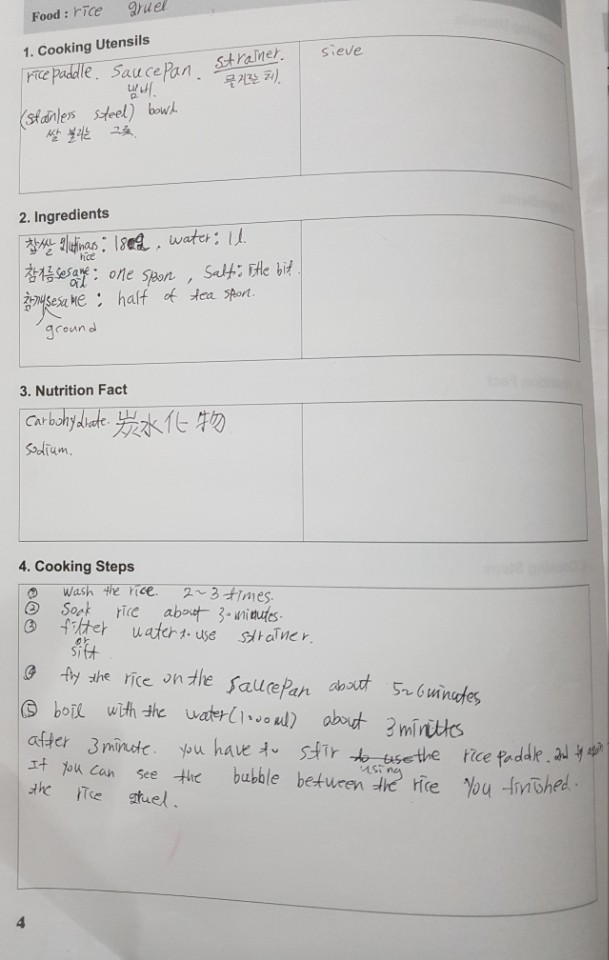 Food : rice gruel
1. Cooking Utensils
rice paddle. saucepan. strainer. sieve
냄비. 물기르는 체.
(stainless steel) bowl
쌀 불리는 그릇.
2. Ingredients
찹쌀 glutinous rice: 180g, water: 1l.
참기름 sesame oil: one spoon, salt: little bit.
참깨 sesame: half of tea spoon.
ground
3. Nutrition Fact
Carbohydrate. 炭水化物
Sodium.
4. Cooking Steps
① Wash the rice. 2~3 times.
② Soak rice about 3-minutes.
③ filter water to use strainer.
or
sift
④ fry the rice on the saucepan about 5~6 minutes
⑤ boil with the water (1000ml) about 3 minuttes
after 3 minute. you have to stir to use the rice paddle. and
using
If you can see the bubble between the rice you finished.
the rice gruel.
4